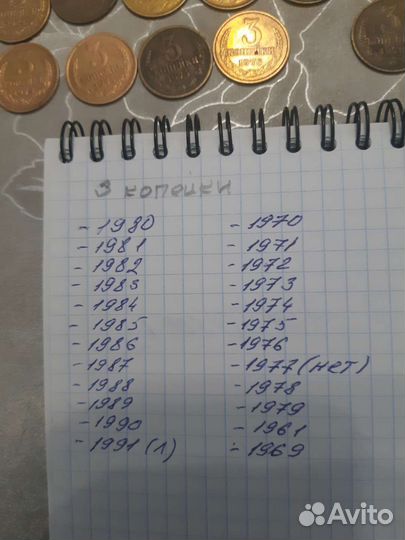 3 копейки 1978
3 копейки
- 1980
- 1981
- 1982
- 1983
- 1984
- 1985
- 1986
- 1987
- 1988
- 1989
- 1990
- 1991 (Л)
- 1970
- 1971
- 1972
- 1973
- 1974
- 1975
- 1976
- 1977 (нет)
- 1978
- 1979
- 1961
- 1969
Avito